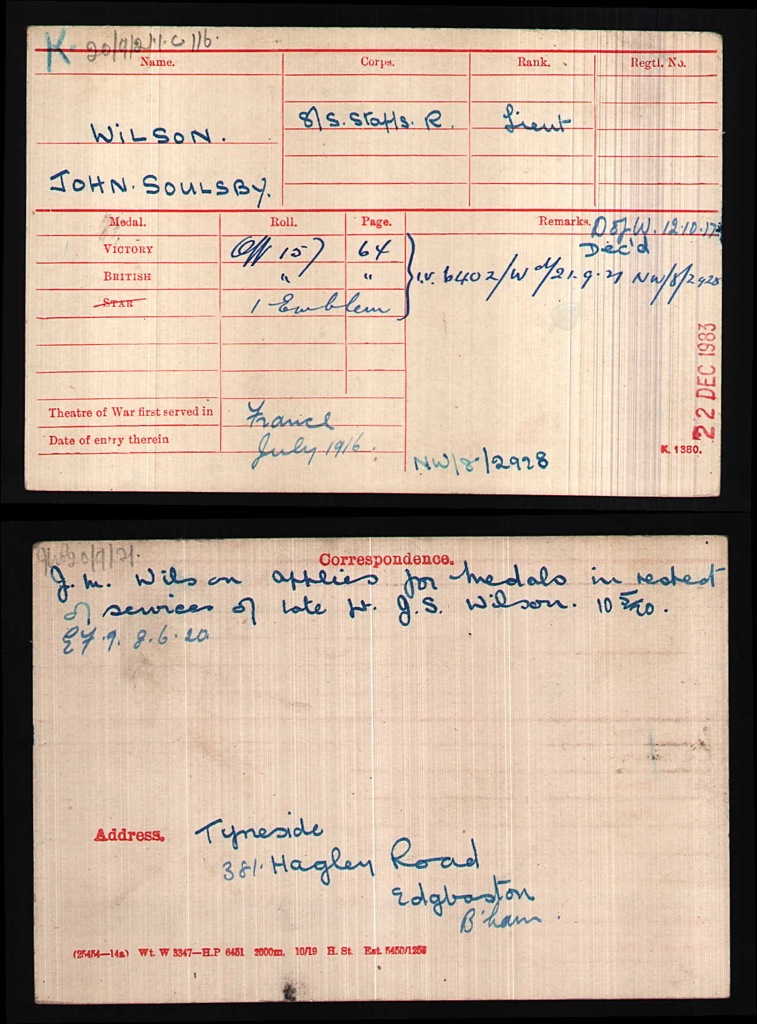 K. 20/9/21
Name. Corps. Rank. Regtl. No.
WILSON. 8/S. Staffs. R. Lieut
JOHN. SOULSBY.
Medal. Roll. Page. Remarks. D of W. 12.10.17
VICTORY Off 157 64 Dec'd
BRITISH " " I.V. 6402/W d/21.9.21 NW/8/2928
STAR 1 Emblem
22 DEC 1983
Theatre of War first served in France
Date of entry therein July 1916.
NW/8/2928
K. 1380.
20/9/21.
Correspondence.
J. M. Wilson applies for medals in respect
of services of late Lt. J.S. Wilson. 10 5/20.
EF. 9. 8. 6. 20
Address. Tyneside
381. Hagley Road
Edgbaston
B'ham.
(25454—14a) Wt. W 3347—H.P 6451 2000m. 10/19 H. St. Est. 5450/1256